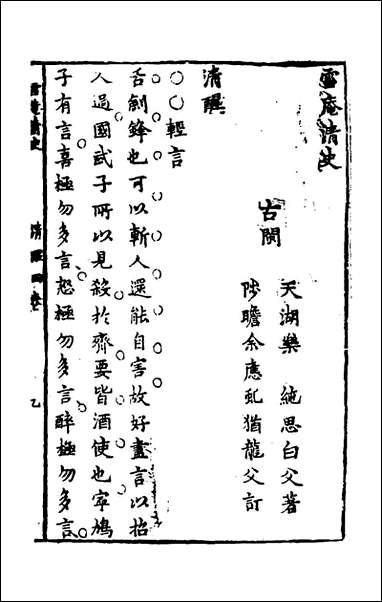 雪庵清史
古閩
天湖樂　純思白父著
陟瞻余應虬猶龍父訂
清醒
○○輕言
舌劍鋒也可以斬人還能自害故好盡言以招
人過國武子所以見殺於齊要皆酒使也寧鳩
子有言喜極勿多言怒極勿多言醉極勿多言